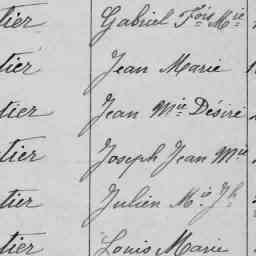 tier Gabriel Fois Mie
tier Jean Marie
tier Jean Mie Désiré
tier Joseph Jean Mie
tier Julien Mie Jh
tier Louis Marie